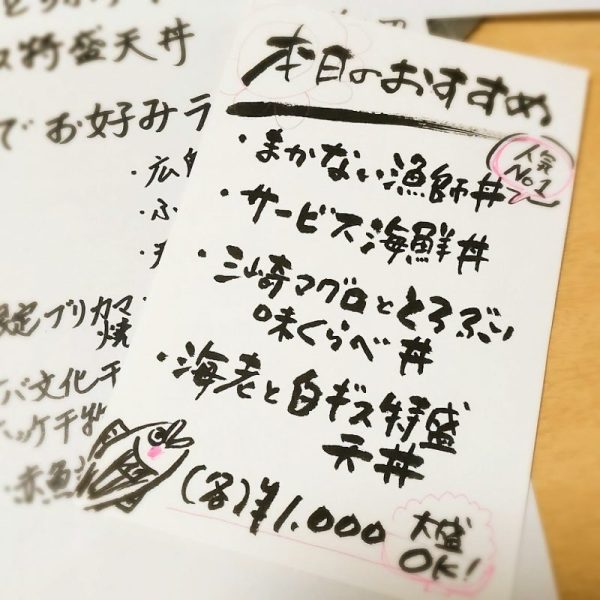 ス特盛天丼
でお好みラ
・広
・ふ
定ブリカマ
焼
バ文化干
ホッケ干物
・赤魚
本日のおすすめ
・まかない漁師丼
人気
No.1
・サービス海鮮丼
・三崎マグロととろぶり
味くらべ丼
・海老と白ギス特盛
天丼
(各)¥1,000
大盛
OK!